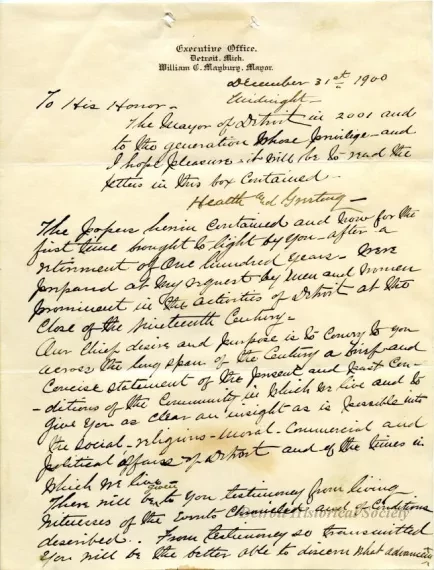 Executive Office.
Detroit, Mich.
William C. Maybury, Mayor.
December 31st 1900
Midnight—
To His Honor—
The Mayor of Detroit in 2001 and
to the generation whose privilege—and
I hope pleasure it will be to read the
letters in this box contained—
Health and Greeting—
The papers herein contained and now for the
first time brought to light by you after a
retirement of One hundred years— were
prepared at my request by men and women
prominent in the activities of Detroit at the
close of the Nineteenth Century—
Our chief desire and purpose is to convey to you
across the long span of the Century a brief and
concise statement of the present and past Con-
-ditions of the Community in which we live and to
give you as clear an insight as is possible into
the social—religious—moral—commercial and
political affairs of Detroit and of the times in
which we live.
There will be given to you testimony from living
witnesses of the Events Chronicled and of Conditions
described.. From testimony so transmitted
you will be the better able to discern what advances
Detroit Historical Society